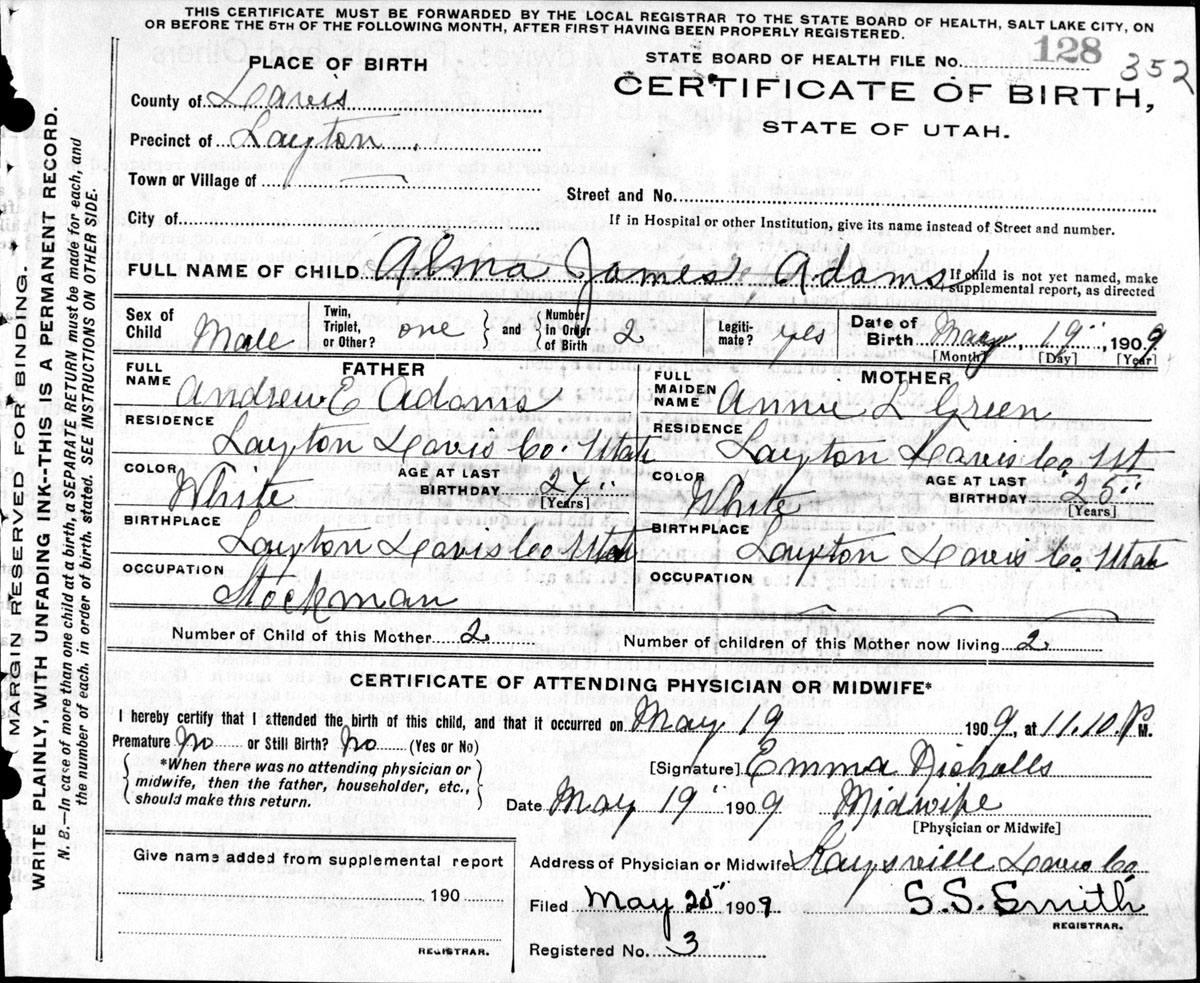 THIS CERTIFICATE MUST BE FORWARDED BY THE LOCAL REGISTRAR TO THE STATE BOARD OF HEALTH, SALT LAKE CITY, ON
OR BEFORE THE 5TH OF THE FOLLOWING MONTH, AFTER FIRST HAVING BEEN PROPERLY REGISTERED.
PLACE OF BIRTH
STATE BOARD OF HEALTH FILE No. 128 352
County of Davis
CERTIFICATE OF BIRTH,
STATE OF UTAH.
Precinct of Layton
Town or Village of
Street and No.
City of
If in Hospital or other Institution, give its name instead of Street and number.
FULL NAME OF CHILD Alma James Adams If child is not yet named, make
supplemental report, as directed
Sex of Child Male Twin, Triplet, or Other? one and Number in Order of Birth 2 Legiti-mate? yes Date of Birth May 19", 1909
[Month] [Day] [Year]
FATHER
MOTHER
FULL NAME Andrew E Adams
FULL MAIDEN NAME Annie L Green
RESIDENCE Layton Davis Co. Utah
RESIDENCE Layton Davis Co Ut
COLOR White AGE AT LAST BIRTHDAY 24" [Years]
COLOR White AGE AT LAST BIRTHDAY 25" [Years]
BIRTHPLACE Layton Davis Co Utah
BIRTHPLACE Layton Davis Co Utah
OCCUPATION Stockman
OCCUPATION
Number of Child of this Mother 2 Number of children of this Mother now living 2
CERTIFICATE OF ATTENDING PHYSICIAN OR MIDWIFE*
I hereby certify that I attended the birth of this child, and that it occurred on May 19 1909, at 11.10 P M.
Premature No or Still Birth? No (Yes or No)
*When there was no attending physician or
midwife, then the father, householder, etc.,
should make this return.
[Signature] Emma Nicholls
Date May 19" 1909 Midwife
[Physician or Midwife]
Give name added from supplemental report
190
REGISTRAR.
Address of Physician or Midwife Kaysville Davis Co
Filed May 25" 1909 S.S. Smith
REGISTRAR.
Registered No. 3
MARGIN RESERVED FOR BINDING.
WRITE PLAINLY, WITH UNFADING INK--THIS IS A PERMANENT RECORD.
N. B.—In case of more than one child at a birth, a SEPARATE RETURN must be made for each, and
the number of each, in order of birth, stated. SEE INSTRUCTIONS ON OTHER SIDE.